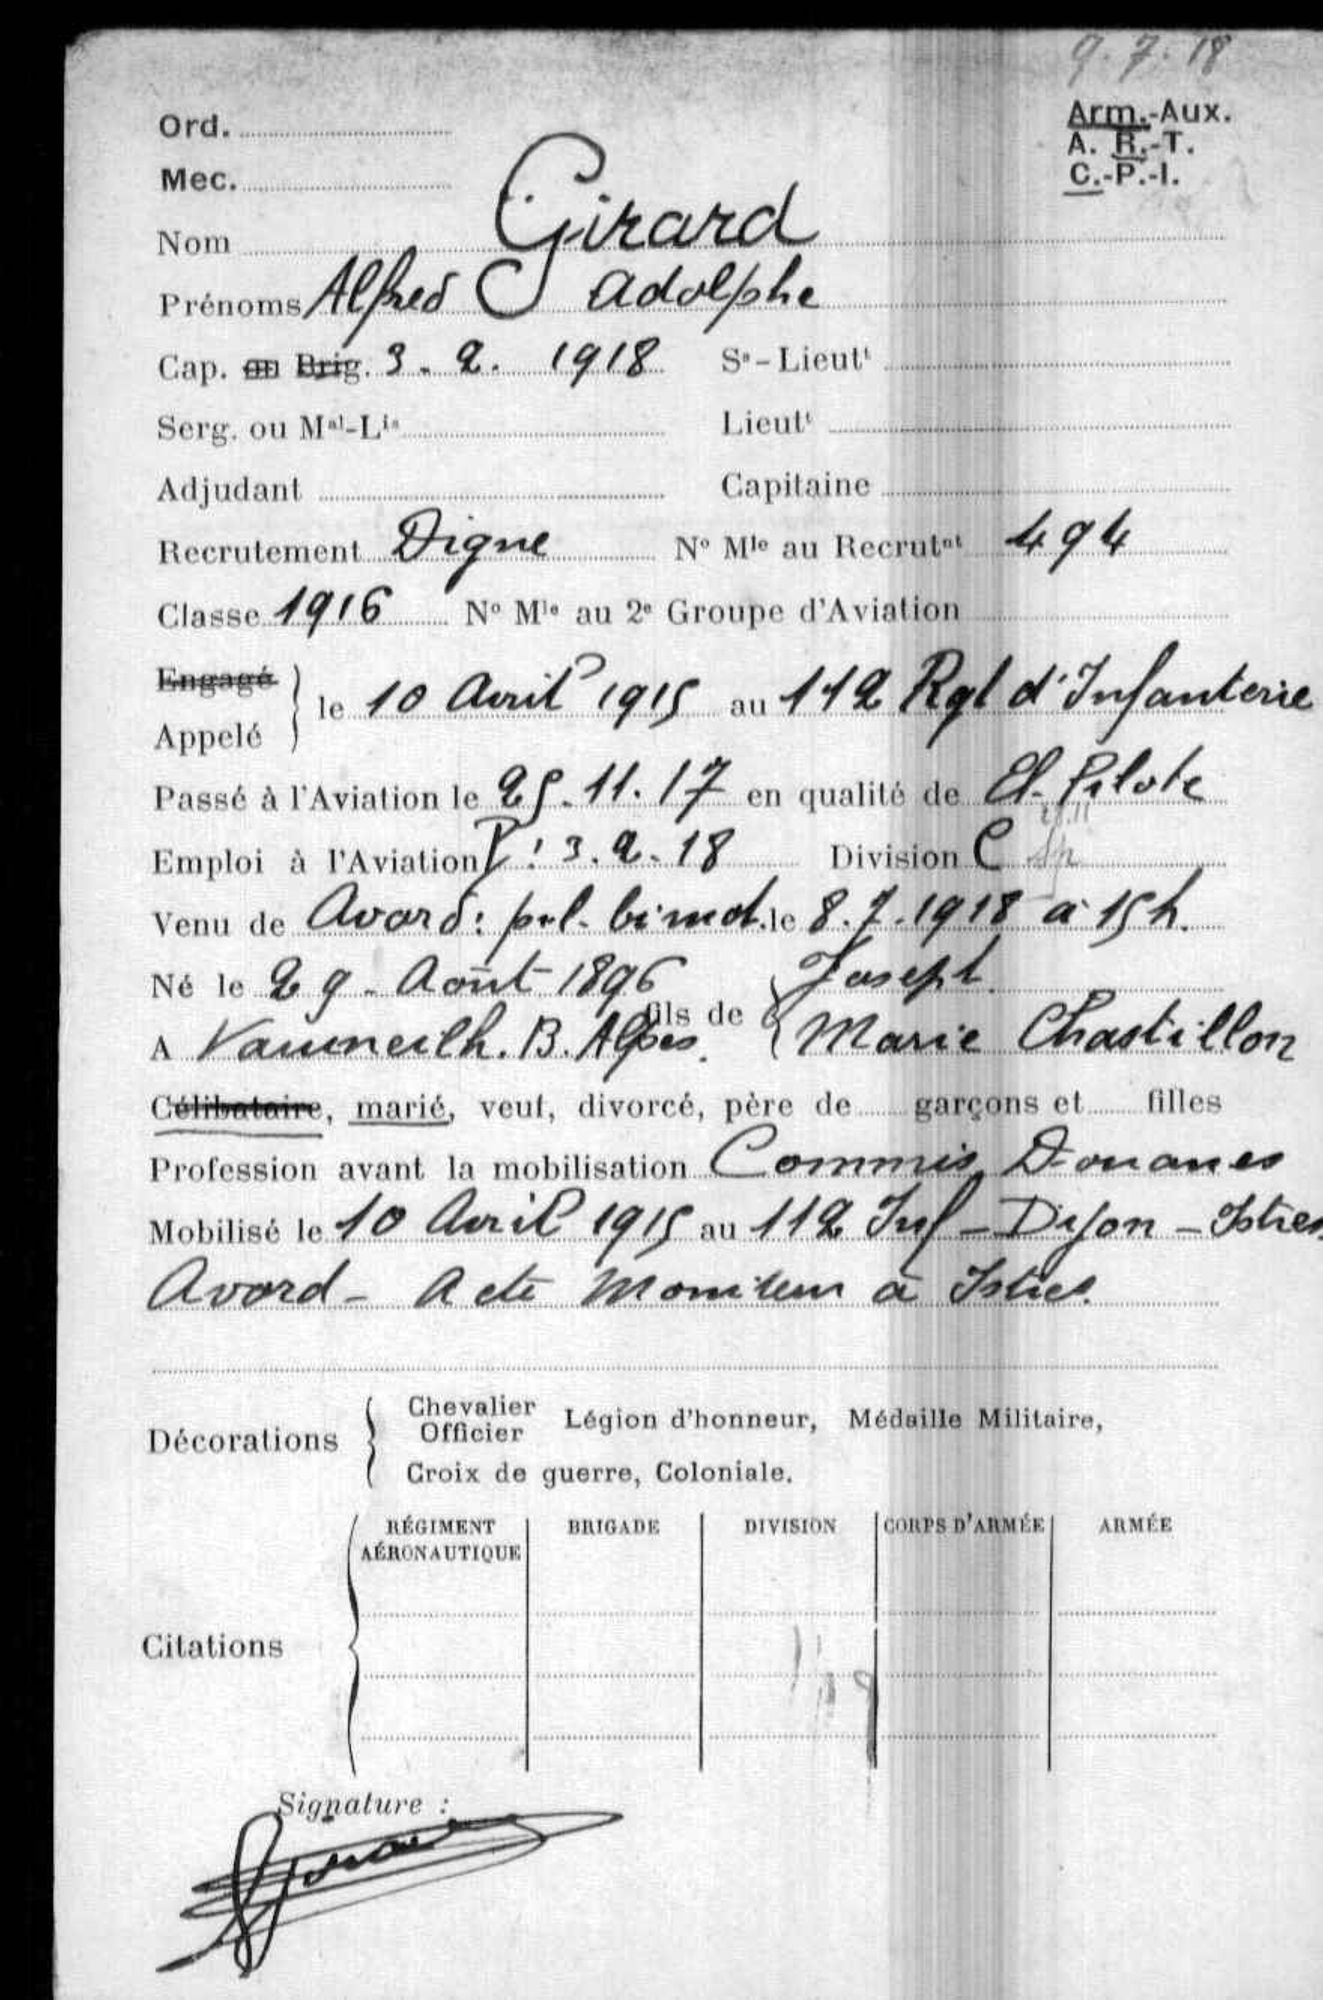 9.7.18
Arm.-Aux.
A. R.-T.
C.-P.-I.
Ord.
Mec.
Nom Girard
Prénoms Alfred Adolphe
Cap. ou Brig. 3.2. 1918 Ss-Lieutt
Serg. ou Mal-Lis Lieutt
Adjudant Capitaine
Recrutement Digne No Mle au Recrutnt 494
Classe 1916 No Mle au 2e Groupe d'Aviation
Engagé
Appelé
le 10 Avril 1915 au 112 Rgt d'Infanterie
Passé à l'Aviation le 25.11.17 en qualité de El. Pilote
Emploi à l'Aviation P: 3.2.18 Division C
Venu de Avord: pil. bimot. le 8.7.1918 à 15h.
Né le 29 - Août 1896 Joseph
fils de
A Vaumeilh. B. Alpes. Marie Chastillon
Célibataire, marié, veuf, divorcé, père de garçons et filles
Profession avant la mobilisation Commis Douanes
Mobilisé le 10 Avril 1915 au 112 Inf - Dijon - Istres
Avord - A été Moniteur à Istres.
Décorations
Chevalier
Officier Légion d'honneur, Médaille Militaire,
Croix de guerre, Coloniale.
RÉGIMENT AÉRONAUTIQUE BRIGADE DIVISION CORPS D'ARMÉE ARMÉE
Citations
Signature :